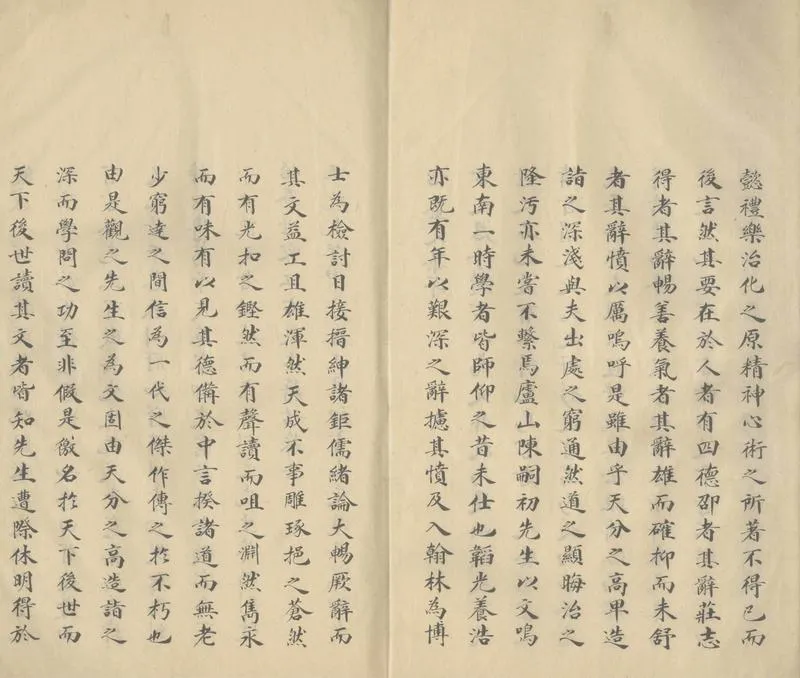 懿禮樂治化之原精神心術之所著不得已而
後言然其要在於人者有四德邵者其辭莊志
得者其辭暢善養氣者其辭雄而確抑而未舒
者其辭憤以厲嗚呼是雖由乎天分之高卑造
詣之深淺與夫出處之窮通然道之顯晦治之
隆污亦未嘗不繫焉廬山陳嗣初先生以文鳴
東南一時學者皆師仰之昔未仕也韜光養浩
亦既有年以艱深之辭攄其憤及入翰林為博
士為檢討日接搢紳諸鉅儒緒論大暢厥辭而
其文益工且雄渾然天成不事雕琢挹之蒼然
而有光扣之鏗然而有聲讀而咀之淵然雋永
而有味有以見其德備於中言揆諸道而無老
少窮達之間信為一代之傑作傳之於不朽也
由是觀之先生之為文固由天分之高造詣之
深而學問之功至非假是徼名於天下後世而
天下後世讀其文者皆知先生遭際休明得於